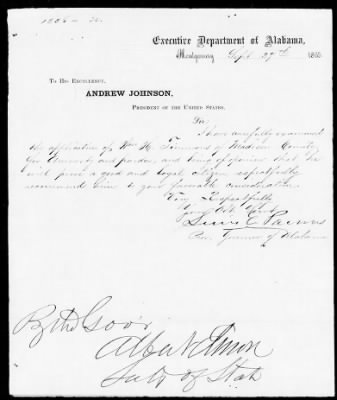 Executive Department of Alabama,
Montgomery Sept 29th 1865
To His Excellency,
ANDREW JOHNSON,
President of the United States,
Sir:
I have carefully examined
the application of Wm H. Timmons of Madison County
for Amnesty and pardon, and being of opinion that he
will prove a good and loyal citizen respectfully
recommend him to your favorable consideration
Very Respectfully
Your Obt Servt
Lewis E Parsons
Prov Governor of Alabama
By the Gov'r
Albert Elmore
Secty of State